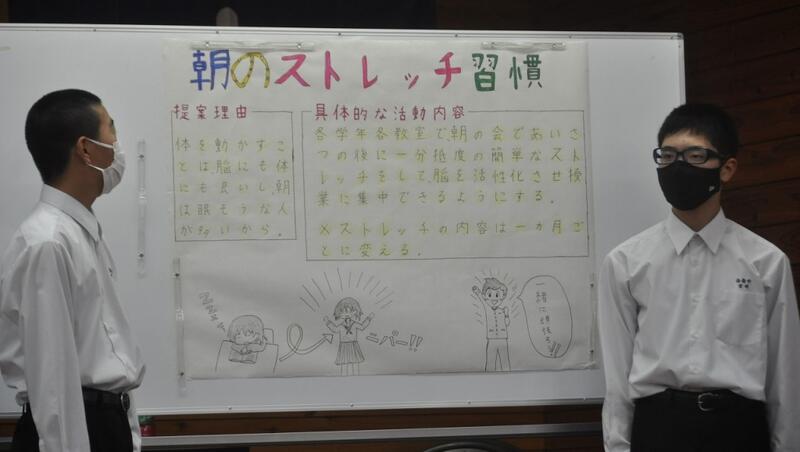 朝のストレッチ習慣
提案理由
体を動かすこ
とは脳にも体
にも良いし、朝
は眠そうな人
が多いから。
具体的な活動内容
各学年各教室で朝の会であいさ
つの後に一分抵度の簡単なスト
レッチをして、脳を活性化させ授
業に集中できるようにする。
※ストレッチの内容は一カ月ご
とに変える。
ZZZ
ニパー!!
一緒に頑張ろう!!